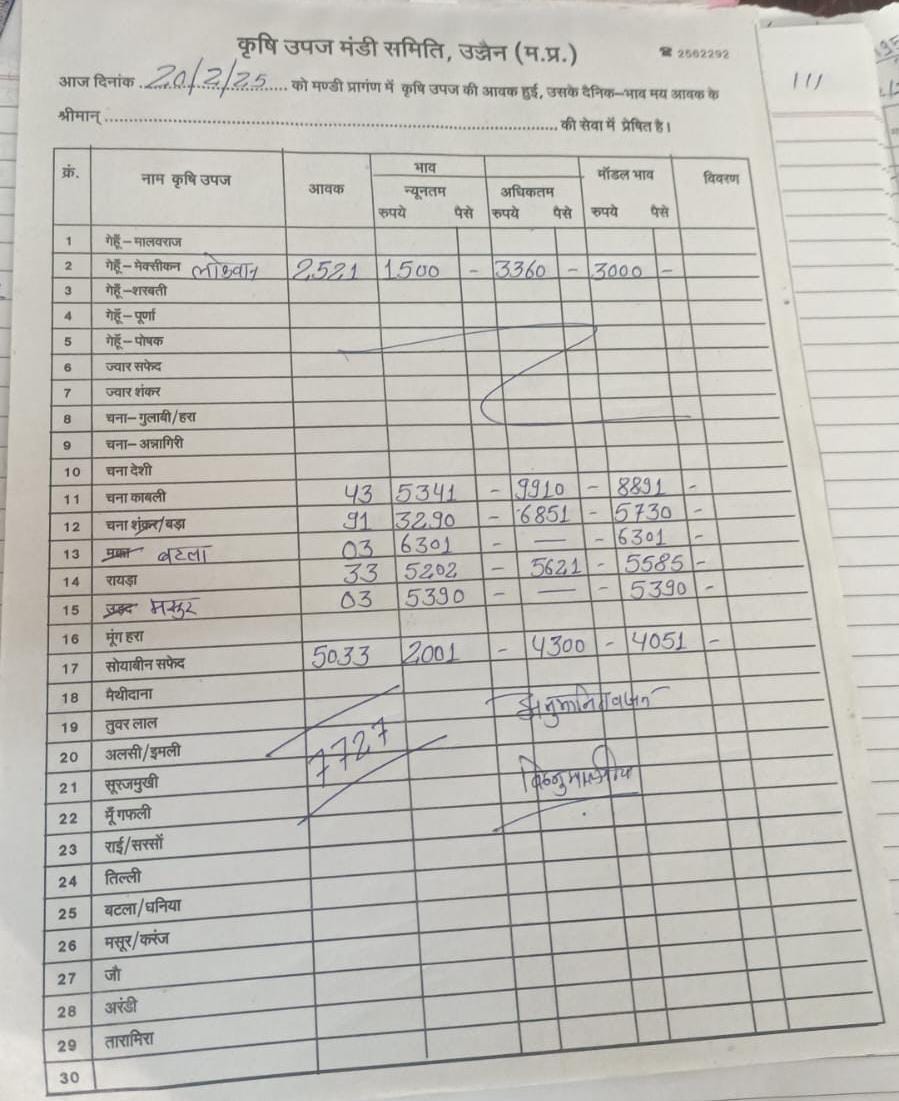 कृषि उपज मंडी समिति, उज्जैन (म.प्र.) ☎ 2562292
111
आज दिनांक 20/2/25 को मण्डी प्रागंण में कृषि उपज की आवक हुई, उसके दैनिक-भाव मय आवक के
श्रीमान् की सेवा में प्रेषित है।
क्रं. नाम कृषि उपज आवक भाव मॉडल भाव विवरण
न्यूनतम अधिकतम
रुपये पैसे रुपये पैसे रुपये पैसे
1 गेहूँ-मालवराज
2 गेहूँ-मेक्सीकन लोकवान 2521 1500 - 3360 - 3000 -
3 गेहूँ-शरबती
4 गेहूँ-पूर्णा
5 गेहूँ-पोषक
6 ज्वार सफेद
7 ज्वार शंकर
8 चना-गुलाबी/हरा
9 चना-अन्नागिरी
10 चना देशी
11 चना काबली 43 5341 - 9910 - 8891 -
12 चना शंकर/बड़ा 91 3290 - 6851 - 5730 -
13 मक्का बटला 03 6301 - — - 6301 -
14 रायड़ा 33 5202 - 5621 - 5585 -
15 उड़द मसुर 03 5390 - — - 5390 -
16 मूंग हरा
17 सोयाबीन सफेद 5033 2001 - 4300 - 4051 -
18 मैथीदाना
19 तुवर लाल
20 अलसी/इमली 7727
21 सूरजमुखी
22 मूँगफली
23 राई/सरसों
24 तिल्ली
25 बटला/धनिया
26 मसूर/करंज
27 जौ
28 अरंडी
29 तारामिरा
30